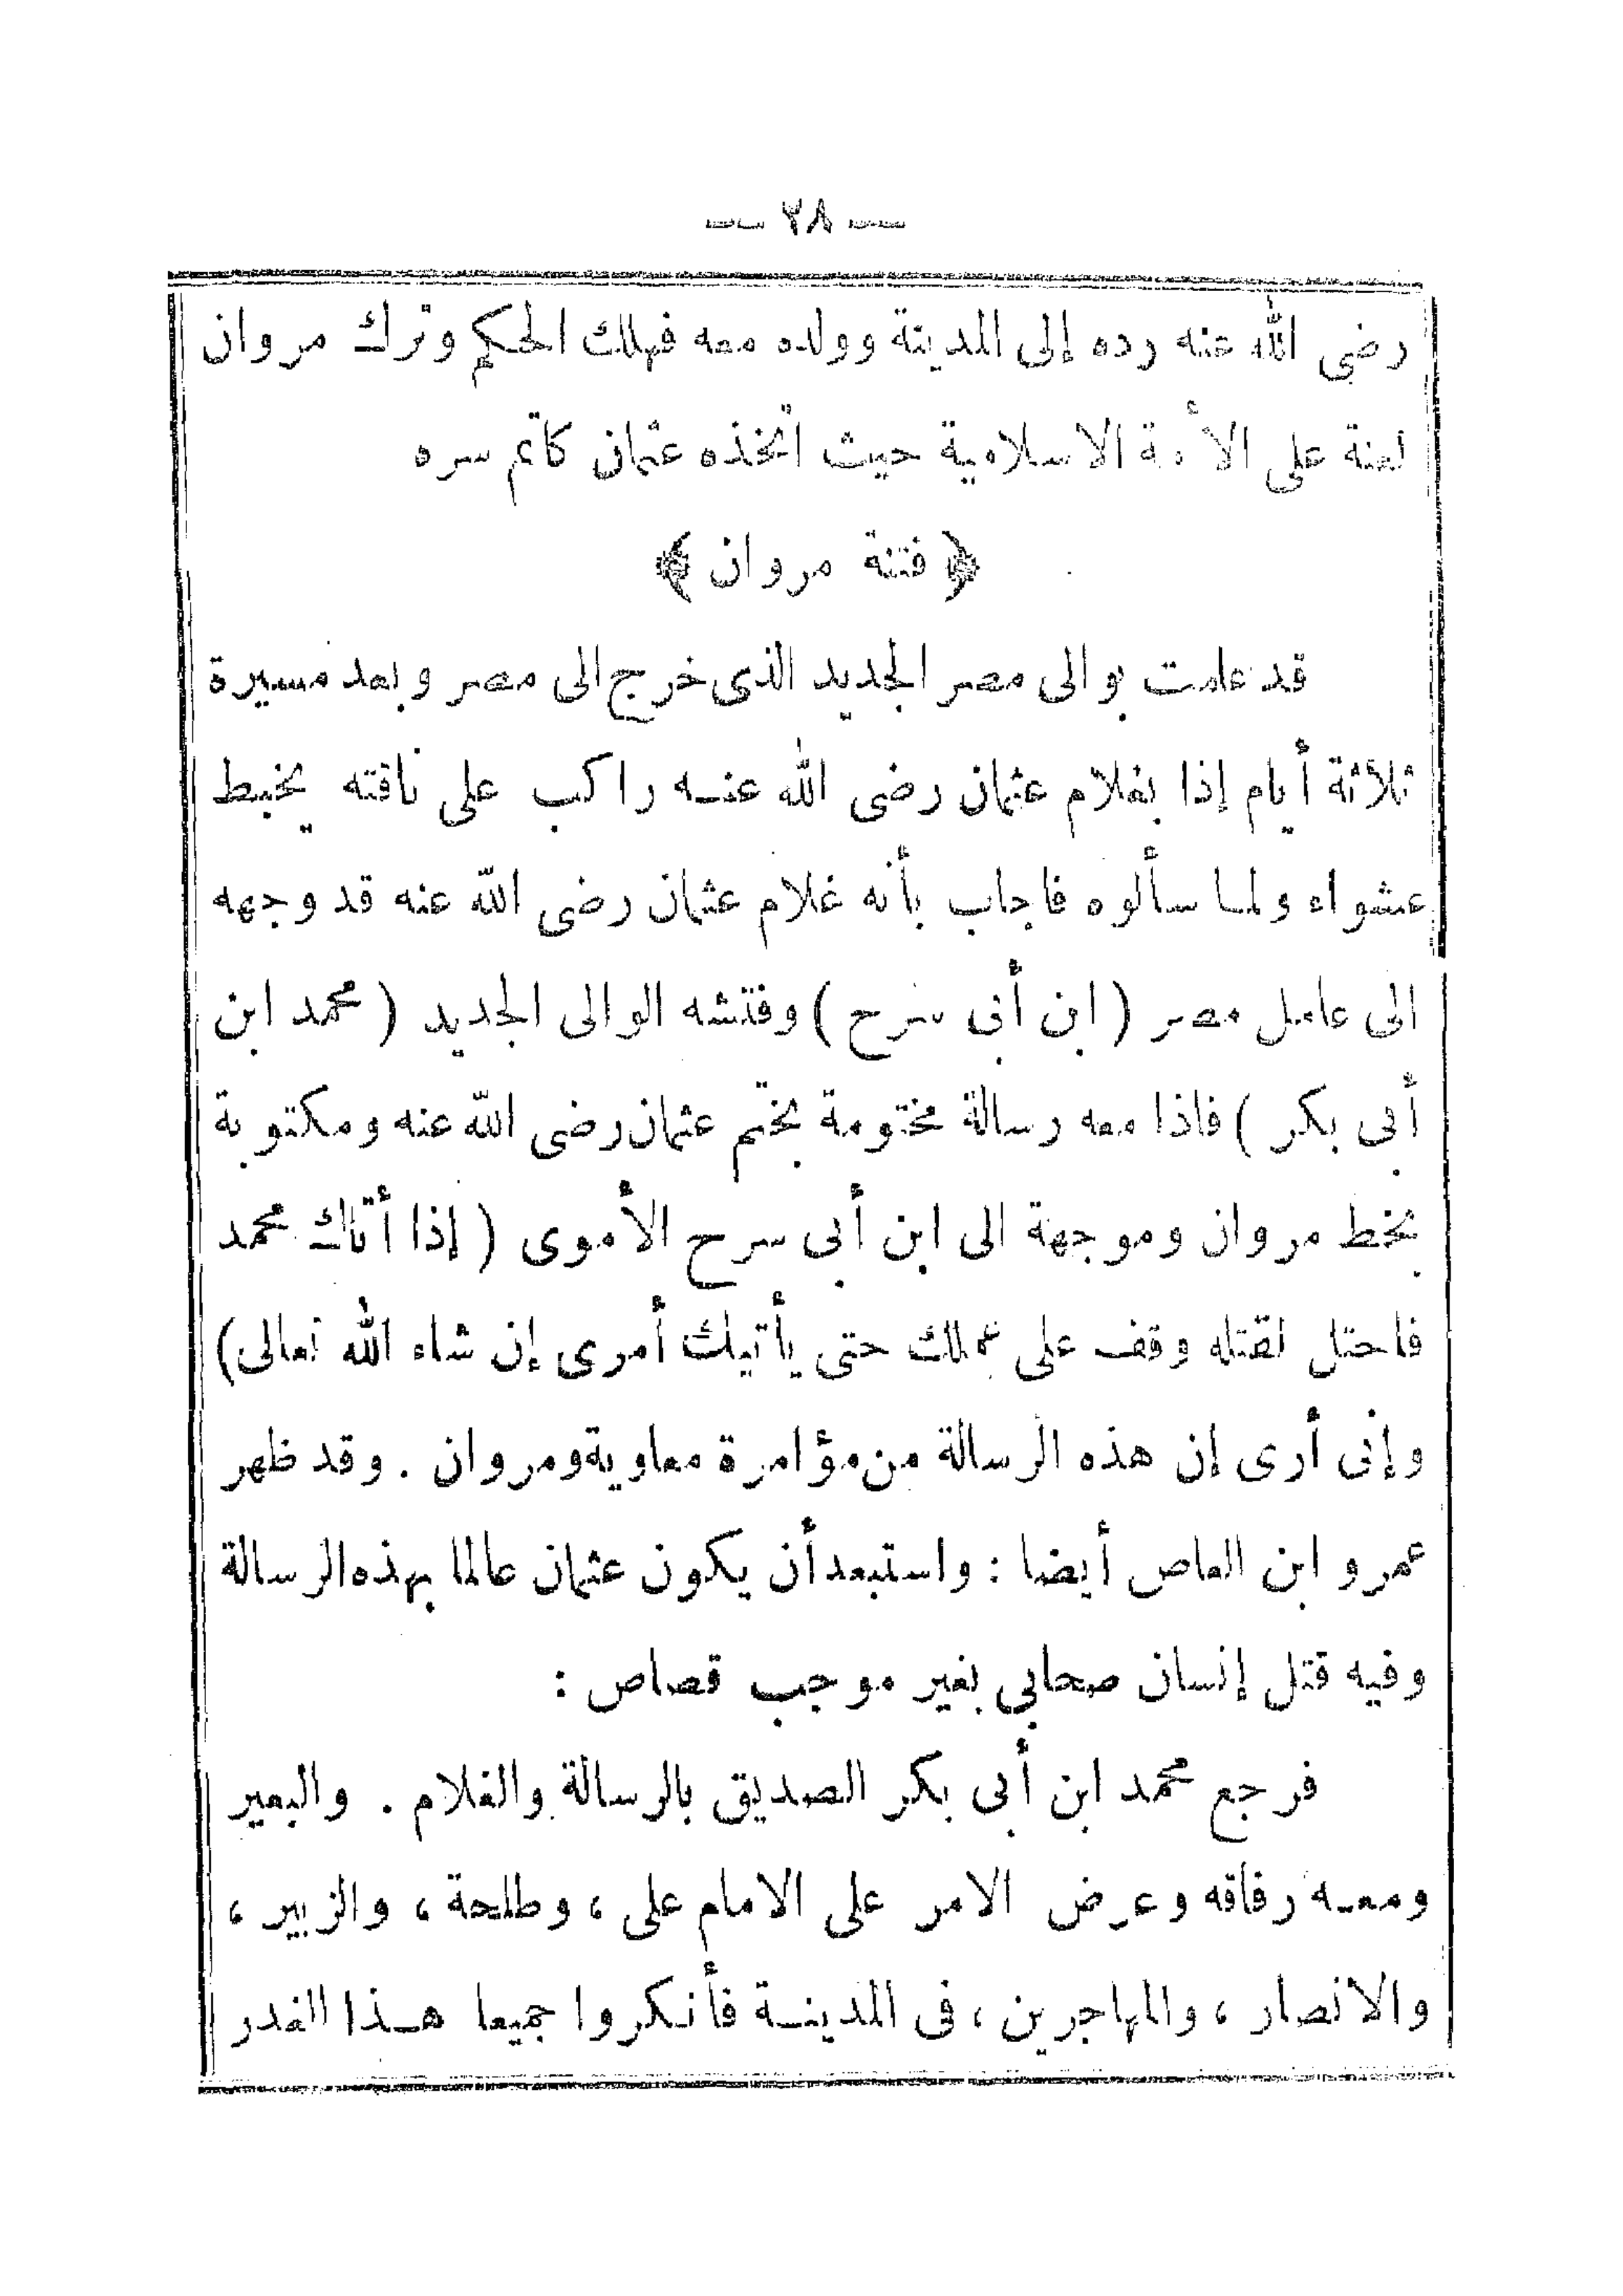 — ٢٨ —
رضى الله عنه رده إلى المدينة وولده معه فهلك الحكم وترك مروان
لعنة على الأمة الاسلامية حيث اتخذه عثمان كاتم سره
﴿ فتنة مروان ﴾
قد علمت بوالى مصر الجديد الذى خرج الى مصر وبعد مسيرة
ثلاثة أيام إذا بغلام عثمان رضى الله عنه راكب على ناقته يخبط
عشواء ولما سألوه فاجاب بأنه غلام عثمان رضى الله عنه قد وجهه
الى عامل مصر ( ابن أبى سرح ) وفتشه الوالى الجديد ( محمد ابن
أبى بكر ) فاذا معه رسالة مختومة بختم عثمان رضى الله عنه ومكتوبة
بخط مروان وموجهة الى ابن أبى سرح الأموى ( إذا أتاك محمد
فاحتل لقتله وقف على عملك حتى يأتيك أمرى إن شاء الله تعالى )
وإنى أرى إن هذه الرسالة من مؤامرة معاوية ومروان . وقد ظهر
عمرو ابن العاص أيضا : واستبعد أن يكون عثمان عالما بهذه الرسالة
وفيه قتل إنسان صحابي بغير موجب قصاص :
فرجع محمد ابن أبى بكر الصديق بالرسالة والغلام . والبعير
ومعه رفاقه وعرض الامر على الامام على ، وطلحة ، والزبير ،
والانصار ، والمهاجرين ، فى المدينة فأنكروا جميعا هذا الغدر